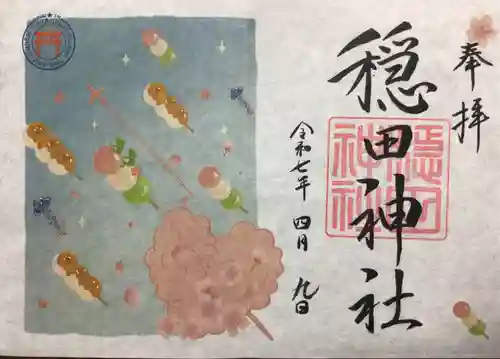 奉拝
穏田神社
穏田
神社
令和七年 四月 九日